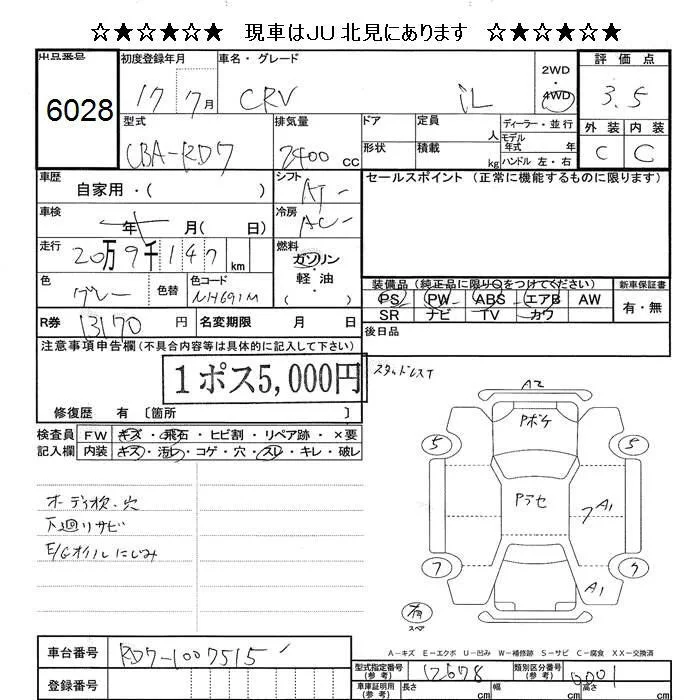 ☆★☆★☆★ 現車はJU北見にあります ☆★☆★☆★
出品番号
6028
初度登録年月
17 7月
車名・グレード
CRV iL
2WD
4WD
評価点
3.5
外装 内装
C C
型式
CBA-RD7
排気量
2400 CC
ドア
形状
定員
人
積載
kg
ディーラー・並行
モデル年式 年
ハンドル 左・右
車歴
自家用・( )
シフト
AT
セールスポイント (正常に機能するものに限ります)
車検
年 月( 日)
冷房
AC
走行
20万9千147km
燃料
ガソリン
軽油
( )
色
グレー
色替
色コード
NH691M
装備品 (純正品に限り○をつけてください)
PS PW ABS エアB AW
SR ナビ TV カワ
新車保証書
有・無
R券
13170 円
名変期限 月 日
後日品
注意事項申告欄 (不具合内容等は具体的に記入して下さい)
1ポス5,000円
スタッドレスT
修復歴 有 〔箇所 〕
検査員
記入欄
FW キズ・飛石・ヒビ割・リペア跡・×要
内装 キズ・汚れ・コゲ・穴・スレ・キレ・破レ
ボディ校・穴
下廻りサビ
E/Gオイルにじみ
A2
Pボケ
5 5
Pラセ
7 A1
7 7
A1
有
スペア
A-キズ E-エクボ U-凹み W-補修跡 S-サビ C-腐食 XX-交換済
車台番号
RD7-1007515
登録番号
型式指定番号
(参考)
12678
類別区分番号
(参考)
0001
車庫証明用
(参考)
長さ cm
幅 cm
高さ cm